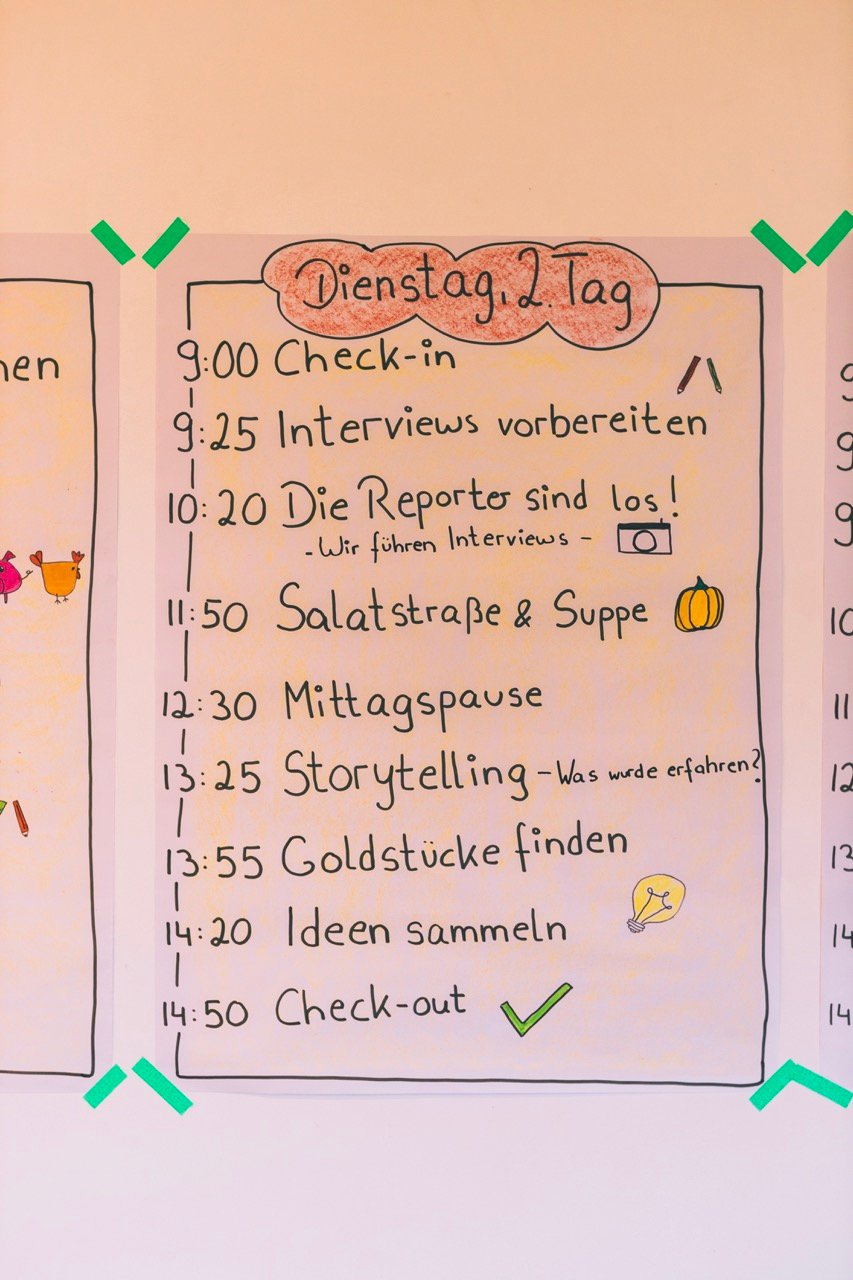 Dienstag, 2. Tag
9:00 Check-in
9:25 Interviews vorbereiten
10:20 Die Reporter sind los!
- Wir führen Interviews -
11:50 Salatstraße & Suppe
12:30 Mittagspause
13:25 Storytelling - Was wurde erfahren?
13:55 Goldstücke finden
14:20 Ideen sammeln
14:50 Check-out